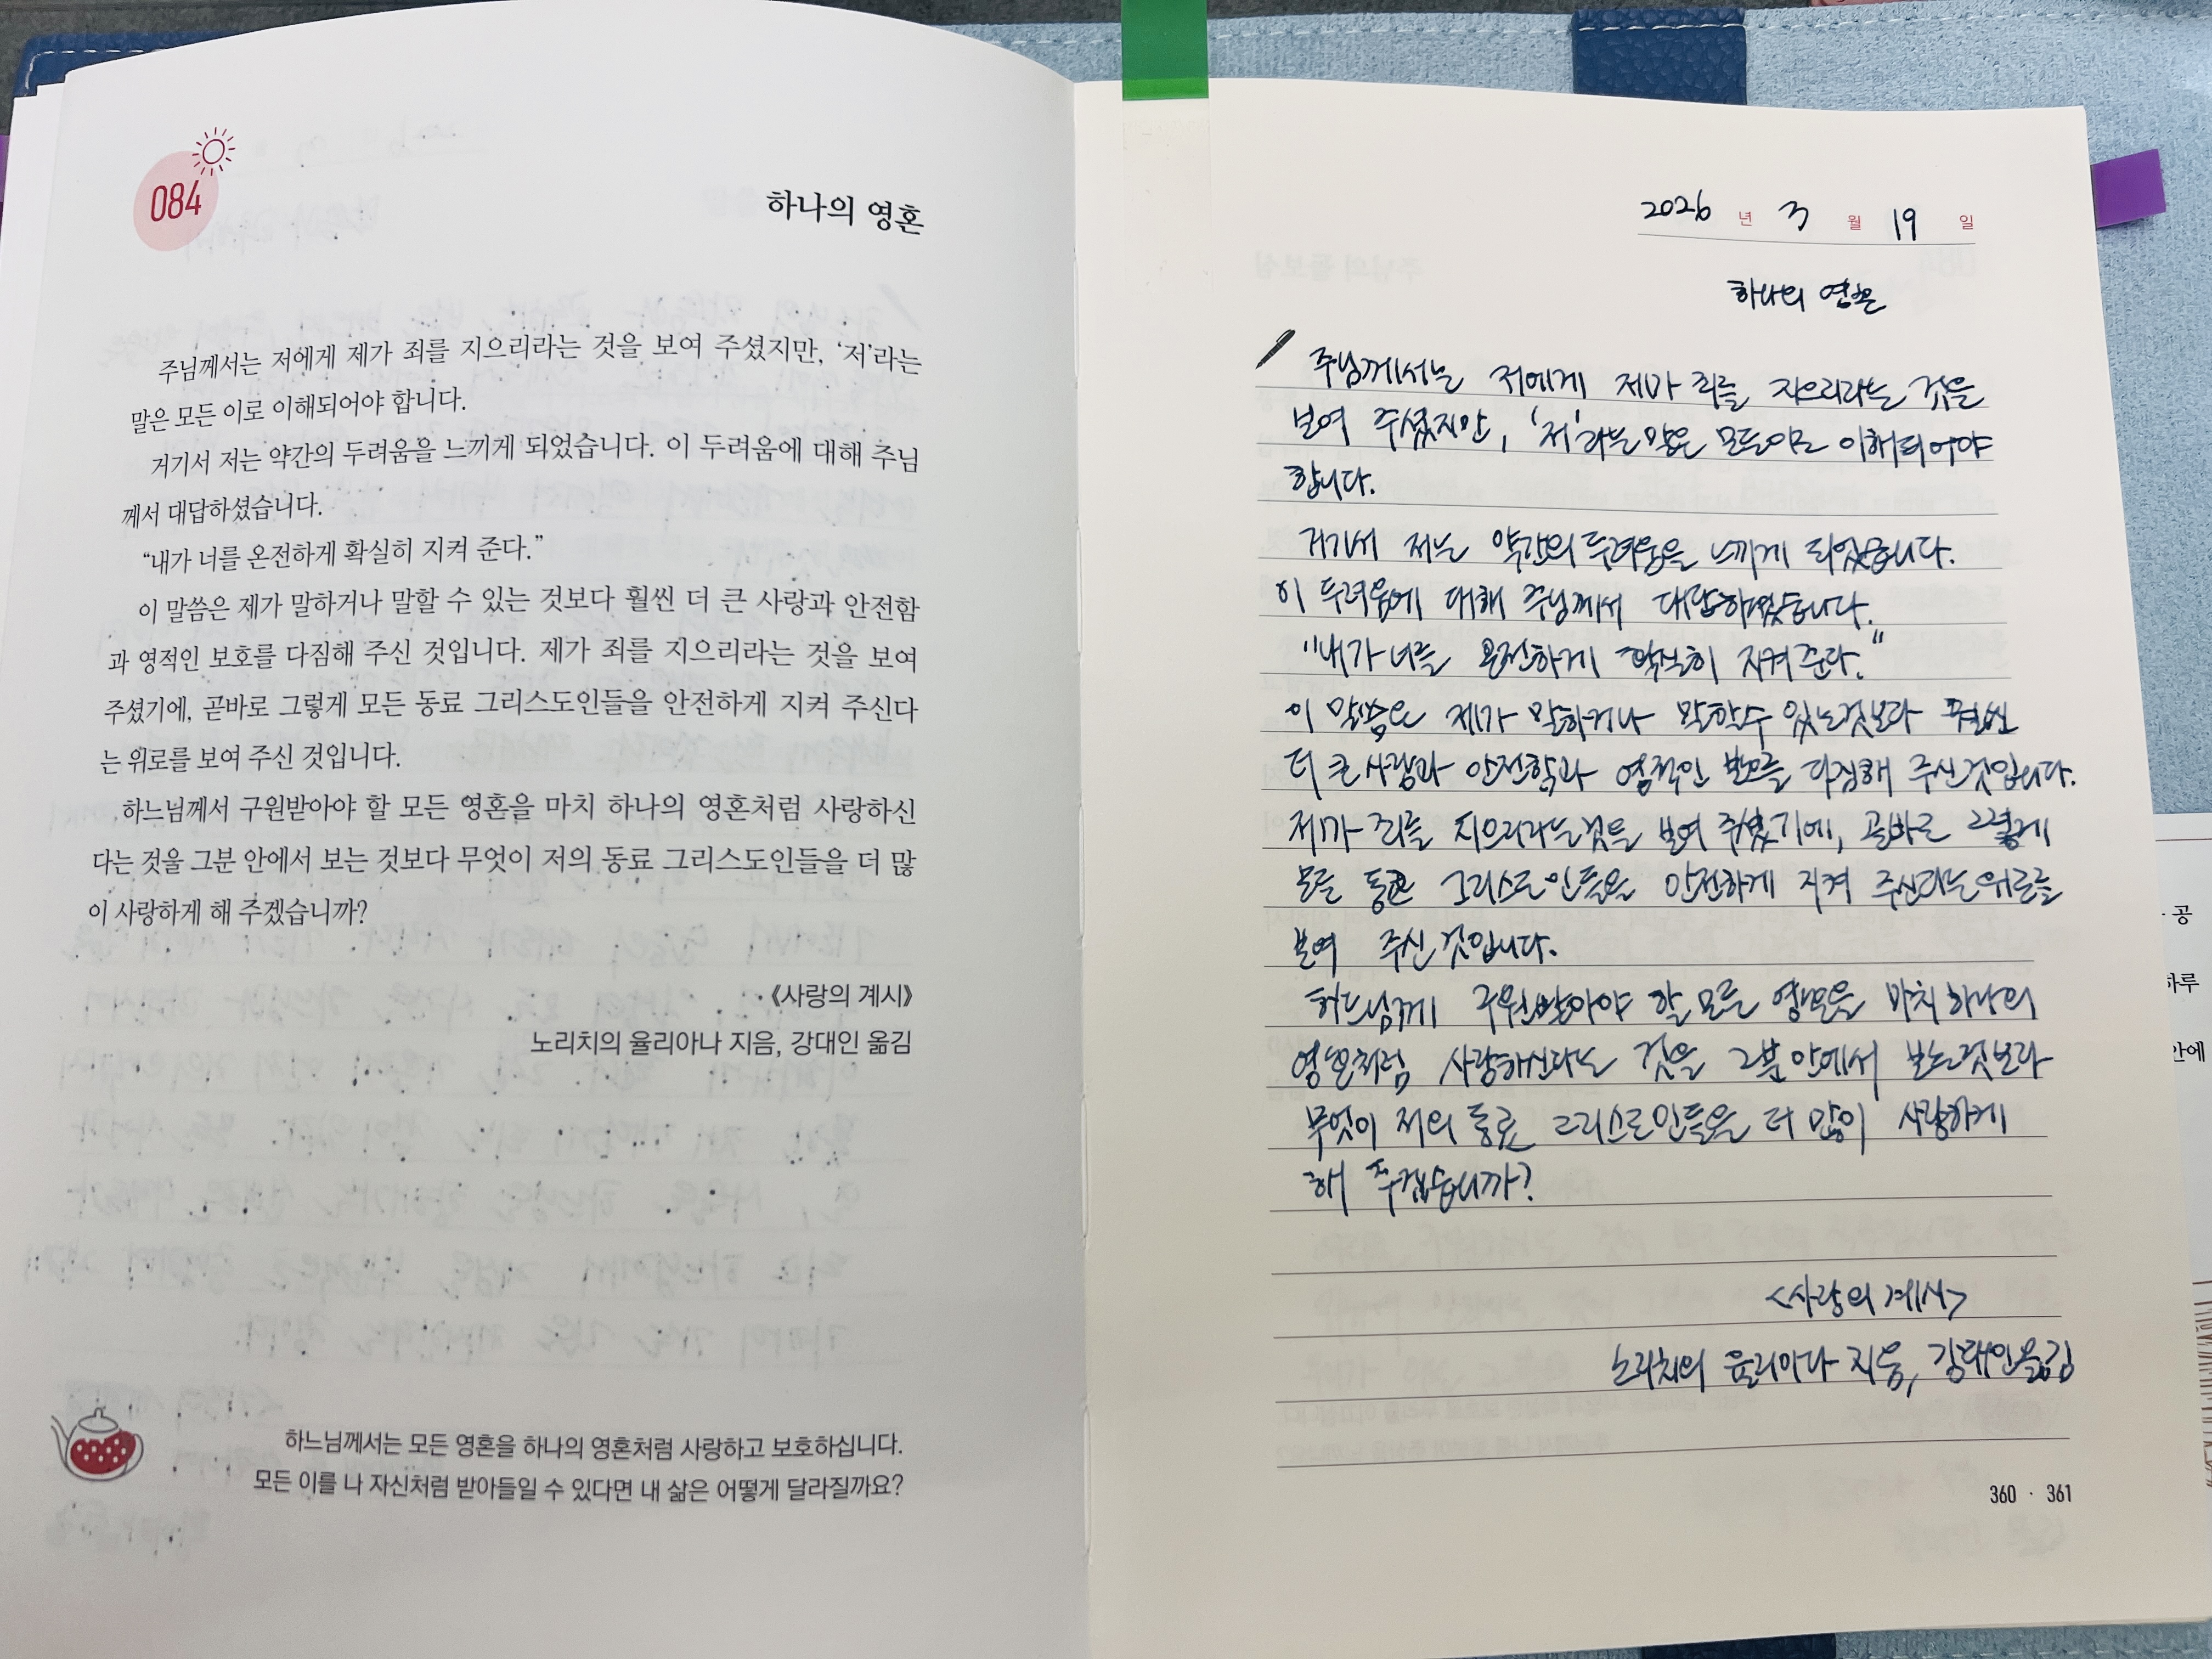 084
하나의 영혼
주님께서는 저에게 제가 죄를 지으리라는 것을 보여 주셨지만, ‘저’라는
말은 모든 이로 이해되어야 합니다.
거기서 저는 약간의 두려움을 느끼게 되었습니다. 이 두려움에 대해 주님
께서 대답하셨습니다.
“내가 너를 온전하게 확실히 지켜 준다.”
이 말씀은 제가 말하거나 말할 수 있는 것보다 훨씬 더 큰 사랑과 안전함
과 영적인 보호를 다짐해 주신 것입니다. 제가 죄를 지으리라는 것을 보여
주셨기에, 곧바로 그렇게 모든 동료 그리스도인들을 안전하게 지켜 주신다
는 위로를 보여 주신 것입니다.
하느님께서 구원받아야 할 모든 영혼을 마치 하나의 영혼처럼 사랑하신
다는 것을 그분 안에서 보는 것보다 무엇이 저의 동료 그리스도인들을 더 많
이 사랑하게 해 주겠습니까?
《사랑의 계시》
노리치의 율리아나 지음, 강대인 옮김
하느님께서는 모든 영혼을 하나의 영혼처럼 사랑하고 보호하십니다.
모든 이를 나 자신처럼 받아들일 수 있다면 내 삶은 어떻게 달라질까요?
2026 년 3 월 19 일
하나의 영혼
주님께서는 저에게 제가 죄를 지으리라는 것을
보여 주셨지만, ‘저’라는 말은 모든이로 이해되어야
합니다.
거기서 저는 약간의 두려움을 느끼게 되었습니다.
이 두려움에 대해 주님께서 대답하셨습니다.
“내가 너를 온전하게 확실히 지켜준다.”
이 말씀은 제가 말하거나 말할수 있는것보다 훨씬
더 큰 사랑과 안전함과 영적인 보호를 다짐해 주신것입니다.
제가 죄를 지으리라는것을 보여 주셨기에, 곧바로 그렇게
모든 동료 그리스도인들을 안전하게 지켜 주신다는위로를
보여 주신것입니다.
하느님께 구원받아야 할 모든 영혼을 마치 하나의
영혼처럼 사랑하신다는 것을 그분 안에서 보는것보다
무엇이 저의 동료 그리스도인들을 더 많이 사랑하게
해 주겠습니까?
<사랑의 계시>
노리치의 율리아나 지음, 강대인옮김
360 · 361
공
하루
안에